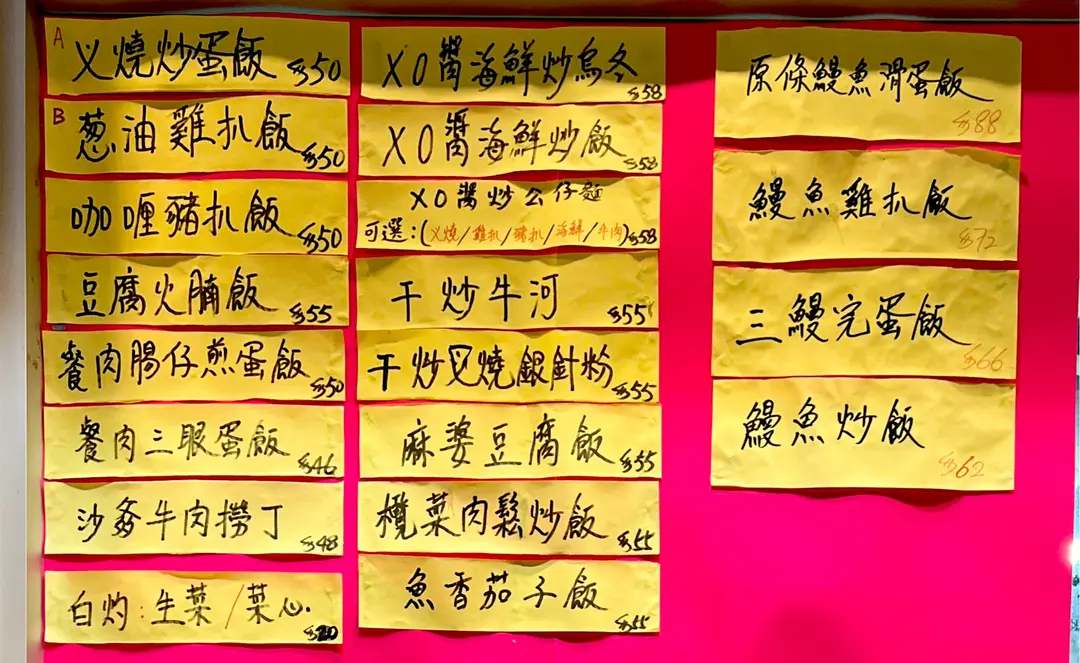 A
叉燒炒蛋飯 $50
B
葱油雞扒飯 $50
咖喱豬扒飯 $50
豆腐火腩飯 $55
餐肉腸仔煎蛋飯 $50
餐肉三眼蛋飯 $46
沙爹牛肉撈丁 $48
白灼:生菜/菜心. $20
XO醬海鮮炒烏冬 $58
XO醬海鮮炒飯 $58
XO醬炒公仔麵
可選:(叉燒/雞扒/豬扒/海鮮/牛肉) $58
干炒牛河 $55
干炒叉燒銀針粉 $55
麻婆豆腐飯 $55
欖菜肉鬆炒飯 $55
魚香茄子飯 $55
原條鰻魚滑蛋飯 $88
鰻魚雞扒飯 $72
三鰻完蛋飯 $66
鰻魚炒飯 $62